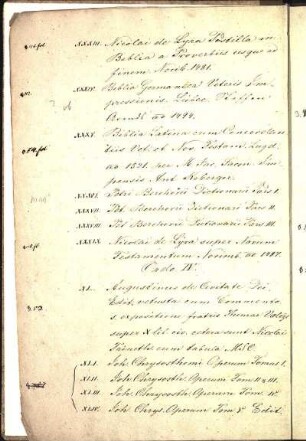 XXXIII. Nicolai de Lyra Postilla in
Biblia a Proverbiis usque ad
finem Norib. 1481.
XXXIV. Biblia Germanica Veteris Im-
pressionis
ao 1494.
XXXV. Biblia Latina cum Concordan-
tiis Vet. et Nov. Testam. Lugd.
ao 1521. per M. Jac. Sacon. Im-
pensis Ant. Koberger.
XXXVI. Petri Berchorii Dictionarii Pars I.
XXXVII. Pet. Berchorii Dictionarii Pars II.
XXXVIII. Pet. Berchorii Dictionarii Pars III.
XXXIX. Nicolai de Lyra super Novum
Testamentum Norimb. ao 1487.
Ordo IV.
XL. Augustinus de Civitate Dei
Edit. vetusta cum Commenta
expositione fratris Thomae
super X lib. civ. cetera sunt Nicolai
cum tabula
XLI. Joh. Chrysosthomi Operum Tomus I.
XLII. Joh. Chrysosth. Operum Tom. II & III.
XLIII. Joh. Chrysosth. Operum Tom. IV.
XLIV. Joh. Chrys. Operum Tom. V. Edit.